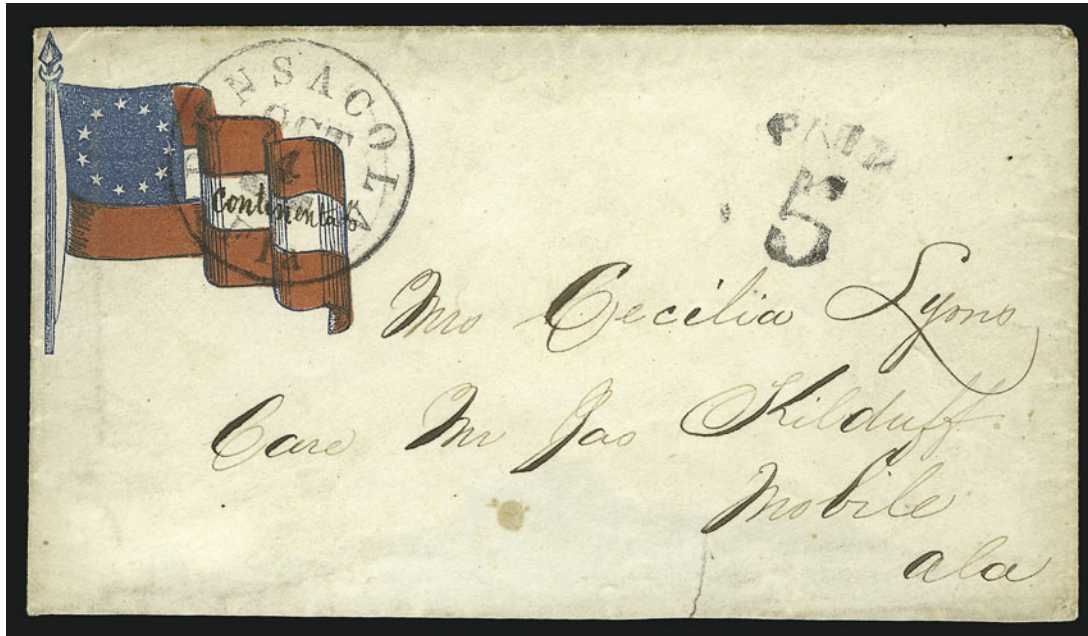 PENSACOLA
OCT
Continentals
PAID
5
Mrs Cecilia Lyons
Care Mr Jas Kilduff
Mobile
ala